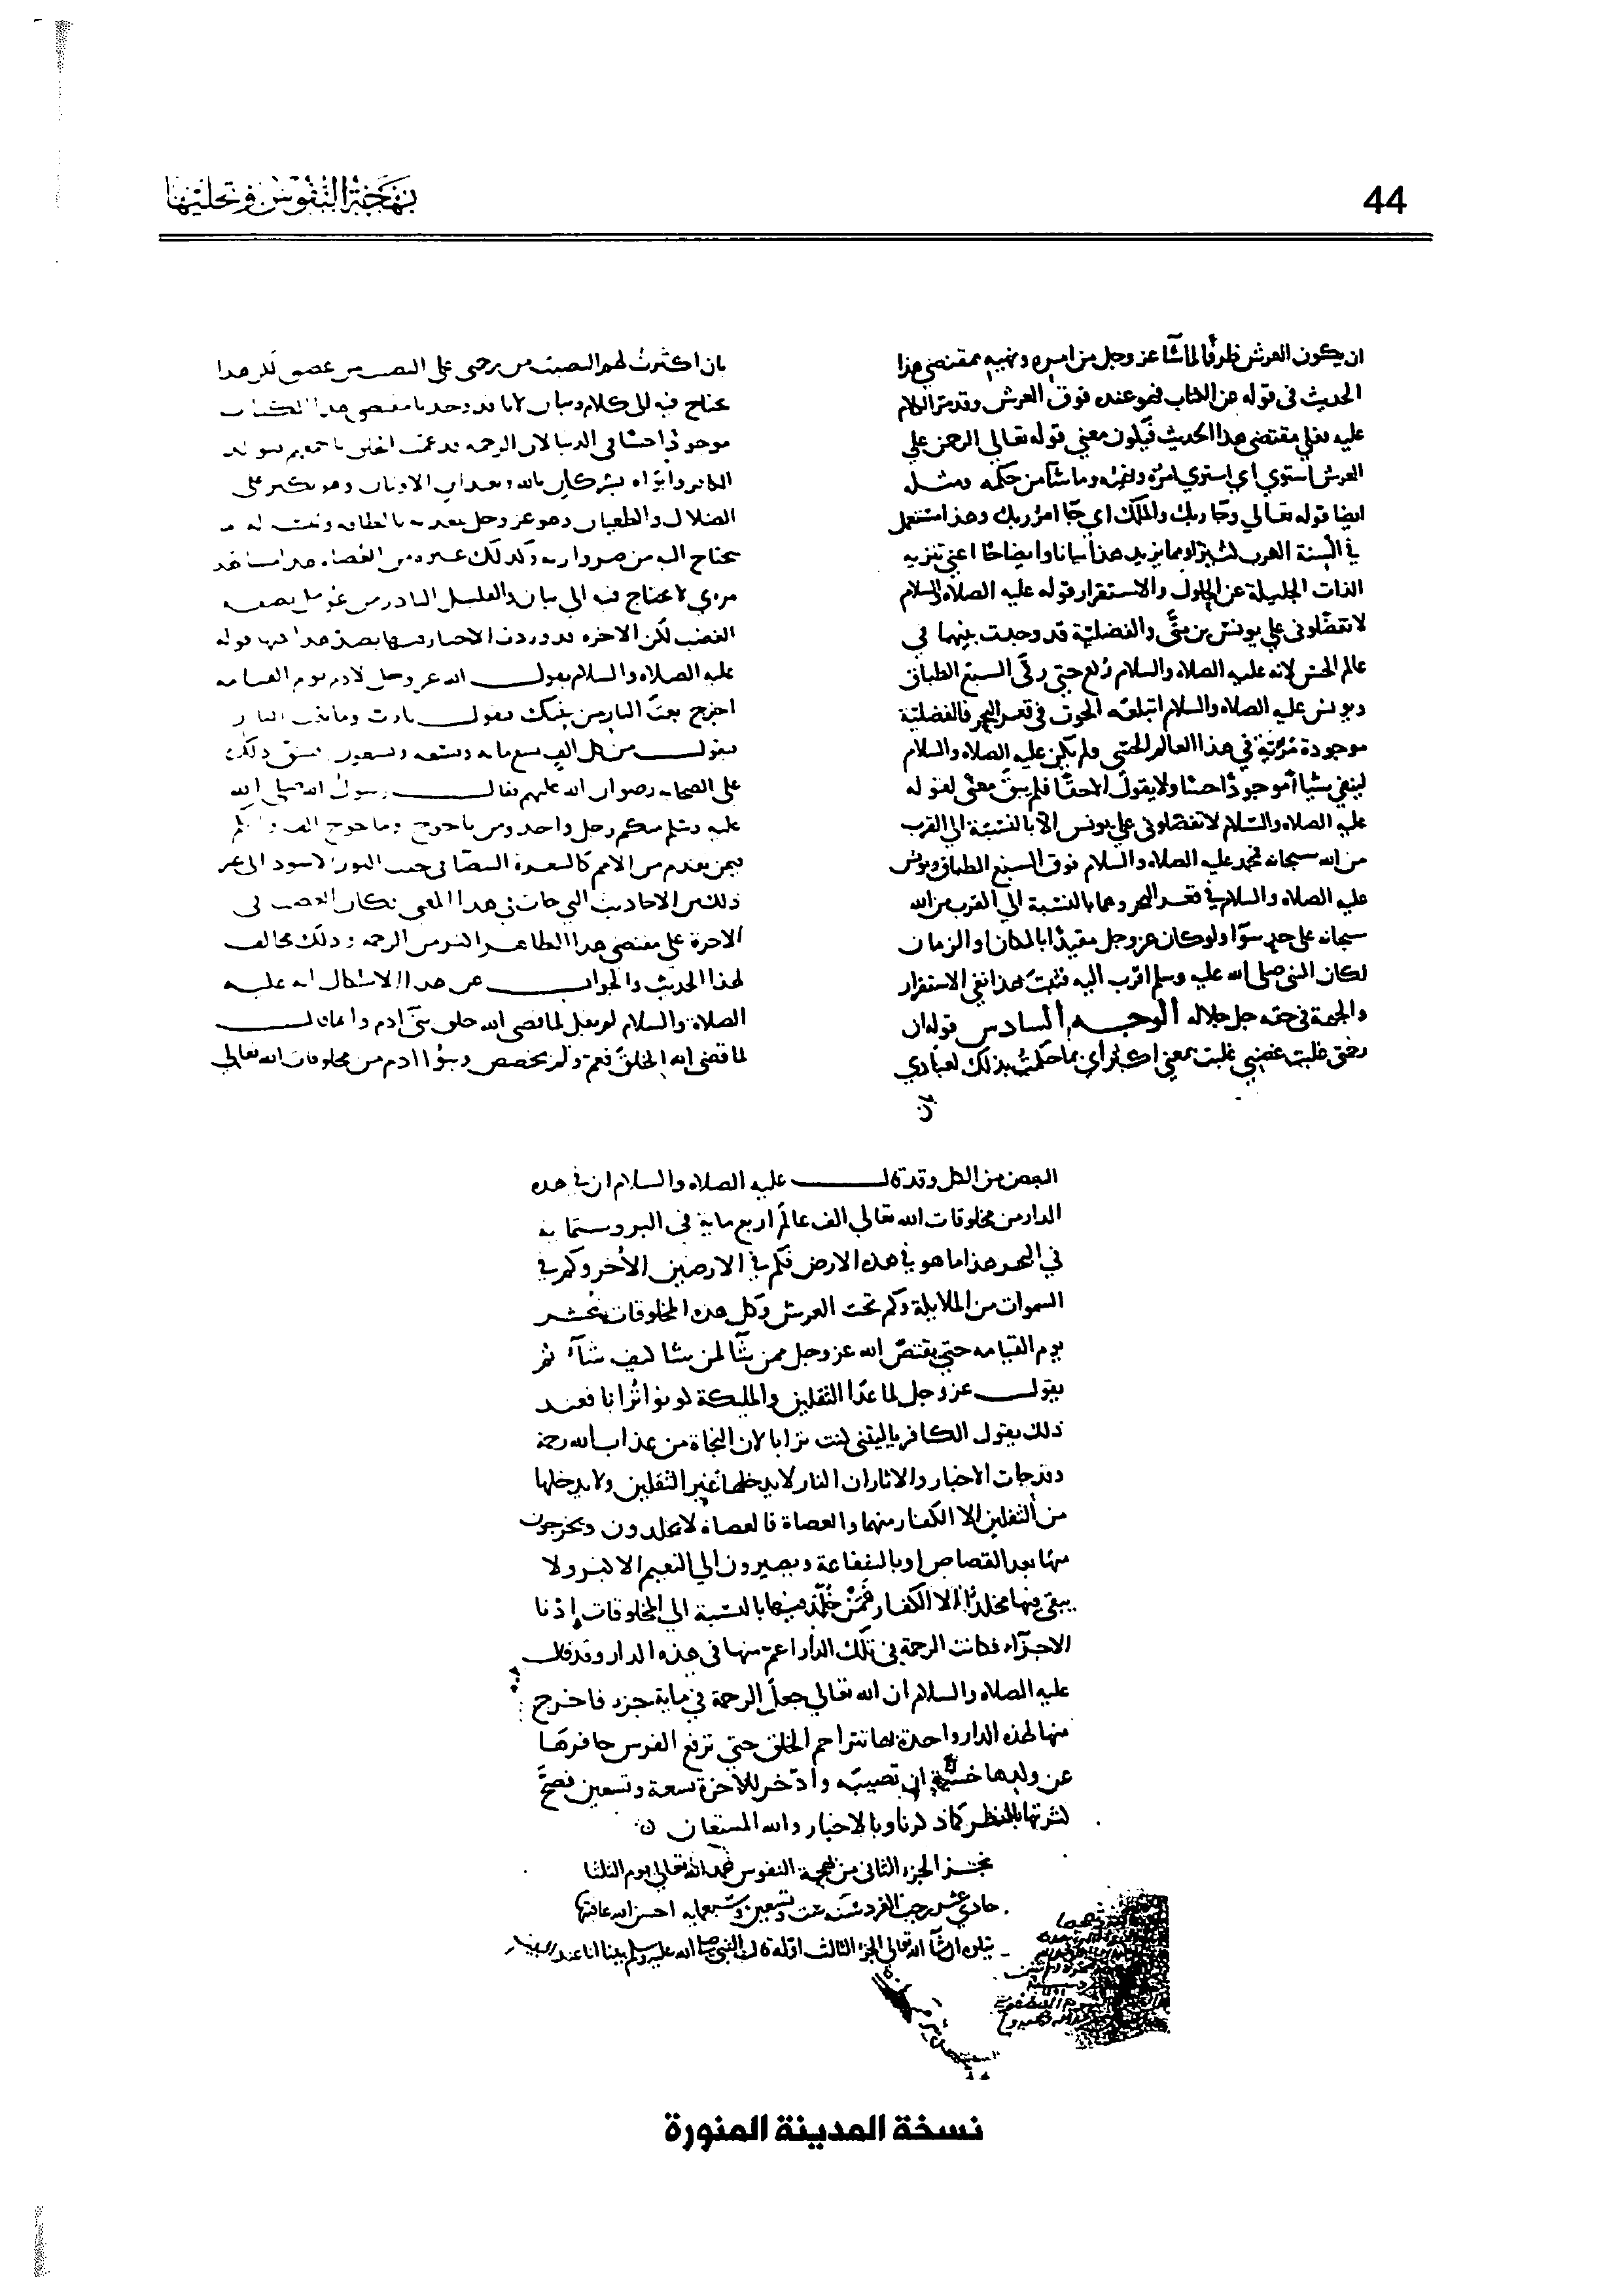 44
بهجة النفوس وتحليتها
ان يكون العرش ظرفا لما شا عز وجل من امره ونهيه بمقتضى هذا
الحديث في قوله عن الكتاب فهو عنده فوق العرش وقد مر الكلام
عليه فعلي مقتضى هذا الحديث فيكون معني قوله تعالي الرحمن علي
العرش استوي اي استوي امره ونهيه وما شآ من حكمه ومثله
ايضا قوله تعالي وجا ربك والملك اي جآ امر ربك وهذا مستعمل
في السنة العرب كثيرا ومما يزيد هذا بيانا وايضاحا اعني تنزيه
الذات الجليلة عن الحلول والاستقرار قوله عليه الصلاه والسلام
لا تفضلوني علي يونس بن متى والفضلية قد وجدت بينهما في
عالم الحس لانه عليه الصلاه والسلام رفع حتي رقى السبع الطباق
ويونس عليه الصلاه والسلام ابتلعه الحوت في قعر البحر فالفضلية
موجودة مرئية في هذا العالم الحسي ولم يكن عليه الصلاه والسلام
لينفي شيا موجودا حسا ولا يقول الا حقا فلم يبق معنى لقوله
عليه الصلاه والسلام لا تفضلوني علي يونس الا بالنسبة الي القرب
من الله سبحانه فمحمد عليه الصلاه والسلام فوق السبع الطباق ويونس
عليه الصلاه والسلام في قعر البحر وهما بالنسبة الي القرب من الله
سبحانه علي حد سوآ ولو كان عز وجل مقيدا بالمكان او الزمان
لكان النبي صلى الله عليه وسلم اقرب اليه فثبت بهذا نفي الاستقرار
والجهة في حقه جل جلاله الوجه السادس قوله ان
رحمتي غلبت غضبي غلبت بمعني اي بما حكمت بذلك لعبادي
بان اكثرت لهم النصيب من رحمتي علي النصيب من غضبي لكن هذا
يحتاج فيه الى كلام وبيان لانا قد وجدنا مقتضى هذا الكتاب
موجودا حسا في الدنيا لان الرحمه قد عمت الخلق باجمعهم يولد
الكافر وابواه يشركان بالله ويعبدان الاوثان وهو يكبر على
الضلال والطغيان وهو عز وجل يغديه بالطافه وييسر له ما
يحتاج اليه من ضروراته وكذلك غيره من العصاه هذا مشاهد
مري لا يحتاج فيه الي بيان والقليل النادر من عومل بصفة
الغضب لكن الاخره قد وردت الاخبار فيها بضد هذا فمنها قوله
عليه الصلاه والسلام يقول الله عز وجل لادم يوم القيامه
اخرج بعث النار من بنيك فيقول يارب وما بعث النار
فيقول من كل الف تسع مايه وتسعه وتسعون فشق ذلك
علي الصحابه رضوان الله عليهم فقال رسول الله صلي الله
عليه وسلم منكم رجل واحد ومن ياجوج وماجوج الف وانتم
فيمن تقدم من الامم كالشعرة البيضا في جنب الثور الاسود الى غير
ذلك من الاحاديث التي جات في هذا المعنى فكان الغضب في
الاخرة على مقتضى هذا الظاهر اكثر من الرحمه وذلك مخالف
لهذا الحديث والجواب عن هذا الاشكال انه عليه
الصلاة والسلام لم يقل لما قضى الله خلق بني ادم وانما قال
لما قضى الله الخلق فعم ولم يخصص وبنو ادم من مخلوقات الله تعالي
البعض من الكل وقد قال عليه الصلاه والسلام ان في هذه
الدار من مخلوقات الله تعالي الف عالم اربع ماية في البر وستماية
في البحر هذا ما هو في هذه الارض فكم في الارضين الأخر وكم في
السموات من الملايكة وكم تحت العرش وكل هذه المخلوقات تحشر
يوم القيامه حتي يقتص الله عز وجل ممن شآ لمن شا كيف شآء ثم
يقول عز وجل لما عدا الثقلين والمليكة كونوا ترابا فعند
ذلك يقول الكافر ياليتني كنت ترابا لان النجاة من عذاب الله رحمة
وقد جات الاخبار والاثار ان النار لا يدخلها غير الثقلين ولا يدخلها
من الثقلين الا الكفار منهما والعصاة فالعصاه لا يخلدون ويخرجون
منها بعد القصاص او بالشفاعة ويصيرون الي النعيم الاكبر ولا
يبقى فيها مخلدا الا الكفار فمن خلد فيها بالنسبة الي المخلوقات
الاجزآء فكانت الرحمة في تلك الدار اعم منها في هذه الدار وقد قال
عليه الصلاه والسلام ان الله تعالي جعل الرحمة في ماية جزء فاخرج
منها لهذه الدار واحدة بها تتراحم الخلق حتي ترفع الفرس حافرها
عن ولدها خشية ان تصيبه وادخر للاخرة تسعة وتسعين فصح
كثرتها بالنظر كما ذكرنا وبالاخبار والله المستعان
نجز الجزء الثاني من بهجة النفوس بحمد الله تعالي يوم الثلثا
حادي عشر رجب الفرد سنة ست وتسعين وسبعمايه احسن الله عاقبتها
يتلوه ان شآ الله تعالي الجزء الثالث اوله قال النبي صلي الله عليه وسلم بينا انا عند البيت
نسخة المدينة المنورة